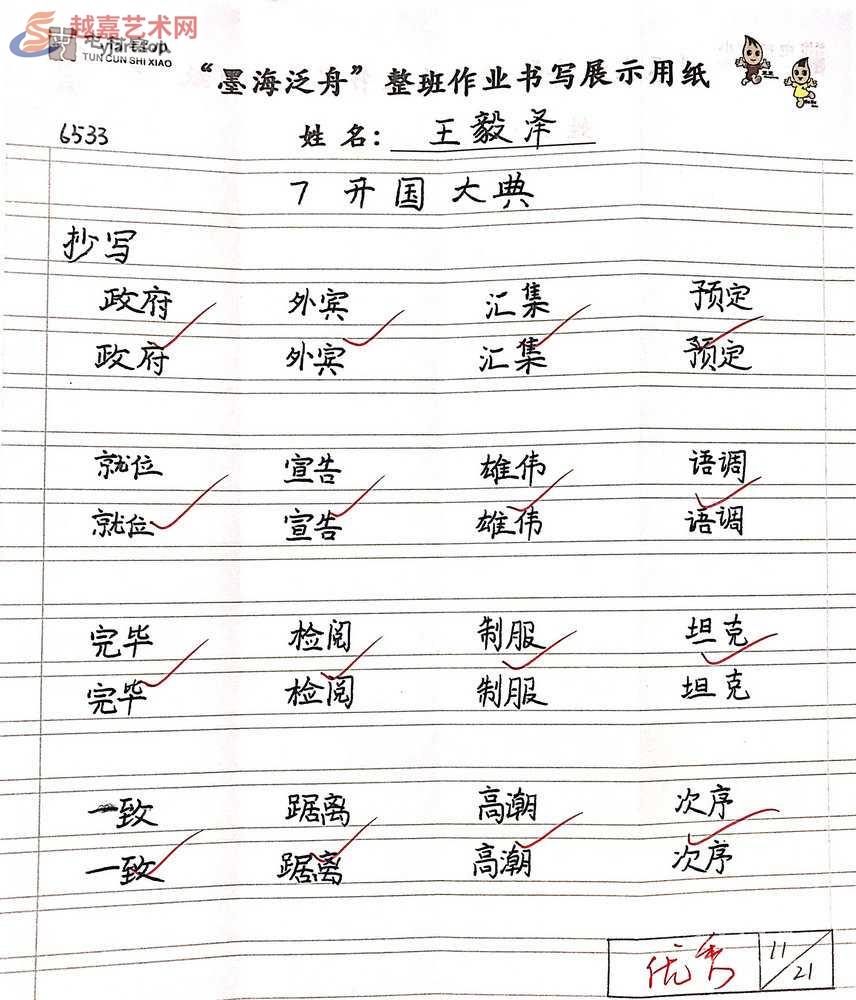 越嘉艺术网
yjartsop
TUN CUN SHI XIAO
“墨海泛舟”整班作业书写展示用纸
6533
姓名：王毅泽
7 开国大典
抄写
政府 外宾 汇集 预定
政府 外宾 汇集 预定
就位 宣告 雄伟 语调
就位 宣告 雄伟 语调
完毕 检阅 制服 坦克
完毕 检阅 制服 坦克
一致 踞离 高潮 次序
一致 踞离 高潮 次序
优秀 11/21